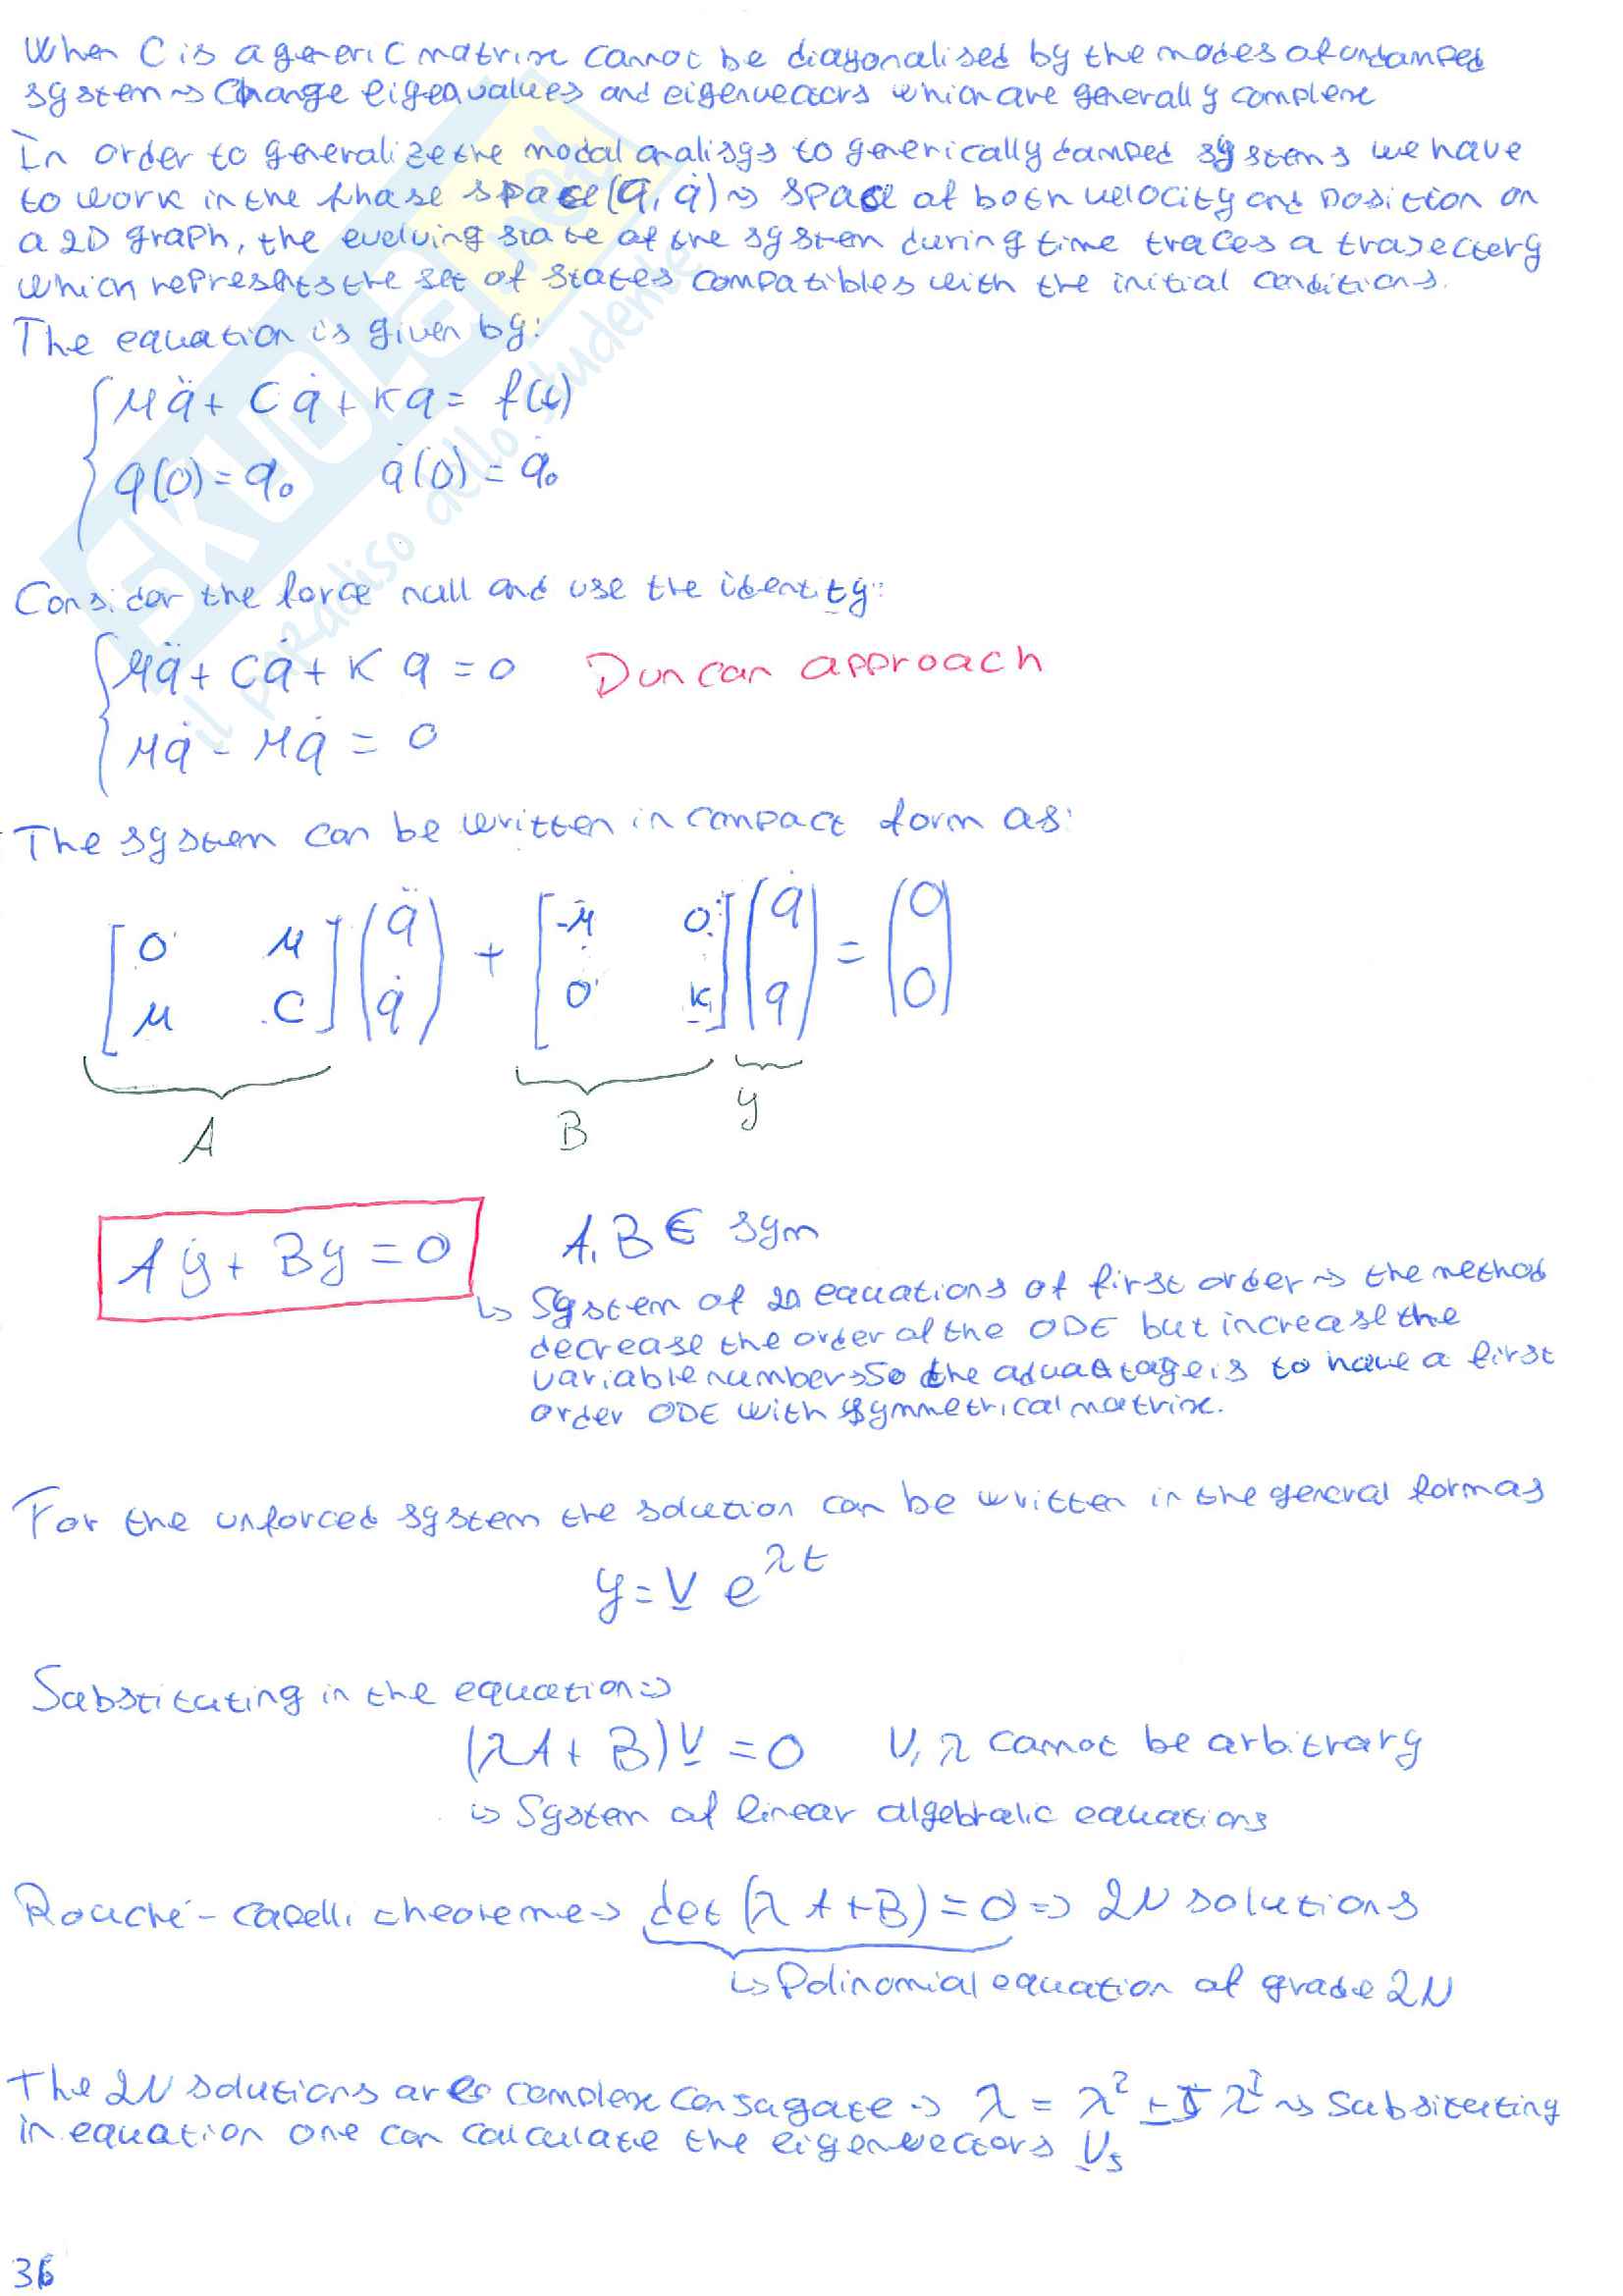 When C is a generic matrix cannot be diagonalised by the modes of undamped
system → Change eigenvalues and eigenvectors which are generally complex
In order to generalize the modal analisys to generically damped systems we have
to work in the phase space (q, q̇) → space of both velocity and position on
a 2D graph, the evolving state of the system during time traces a trajectory
which represents the set of states compatibles with the initial conditions.
The equation is given by:
Mq̈ + Cq̇ + Kq = f(t)
q(0) = q₀ q̇(0) = q̇₀
Consider the force null and use the identity:
Mq̈ + Cq̇ + Kq = 0 Duncan approach
Mq̇ - Mq̇ = 0
The system can be written in compact form as:
[0 M; M C] (q̈; q̇) + [-M 0; 0 K] (q̇; q) = (0; 0)
A B y
Aẏ + By = 0 A, B ∈ sym
↳ System of 2n equations of first order → the method
decrease the order of the ODE but increase the
variable number → So the advantage is to have a first
order ODE with symmetrical matrix.
For the unforced system the solution can be written in the general form as
y = V e^λt
Substituting in the equation ⇒
(λA + B)V = 0 V, λ cannot be arbitrary
↳ System of linear algebraic equations
Rouché-Capelli theoreme → det(λA + B) = 0 ⇒ 2N solutions
↳ Polinomial equation of grade 2N
The 2N solutions are complex conjugate → λ = λ^R ± J λ^I → Subsituting
in equation one can calculate the eigenvectors V_s
36
SKUOLA.net
il paradiso dello studente